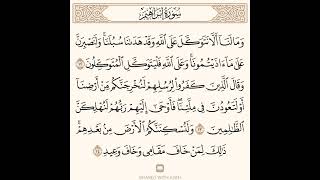 سُورَةُ إِبْرَاهِيمَ
وَمَا لَنَا أَلَّا نَتَوَكَّلَ عَلَى اللَّهِ وَقَدْ هَدَىٰنَا سُبُلَنَا وَلَنَصْبِرَنَّ
عَلَىٰ مَا ءَاذَيْتُمُونَا وَعَلَى اللَّهِ فَلْيَتَوَكَّلِ الْمُتَوَكِّلُونَ ١٢
وَقَالَ الَّذِينَ كَفَرُوا لِرُسُلِهِمْ لَنُخْرِجَنَّكُم مِّنْ أَرْضِنَا
أَوْ لَتَعُودُنَّ فِي مِلَّتِنَا فَأَوْحَىٰ إِلَيْهِمْ رَبُّهُمْ لَنُهْلِكَنَّ
الظَّٰلِمِينَ ١٣ وَلَنُسْكِنَنَّكُمُ الْأَرْضَ مِن بَعْدِهِمْ
ذَٰلِكَ لِمَنْ خَافَ مَقَامِي وَخَافَ وَعِيدِ ١٤